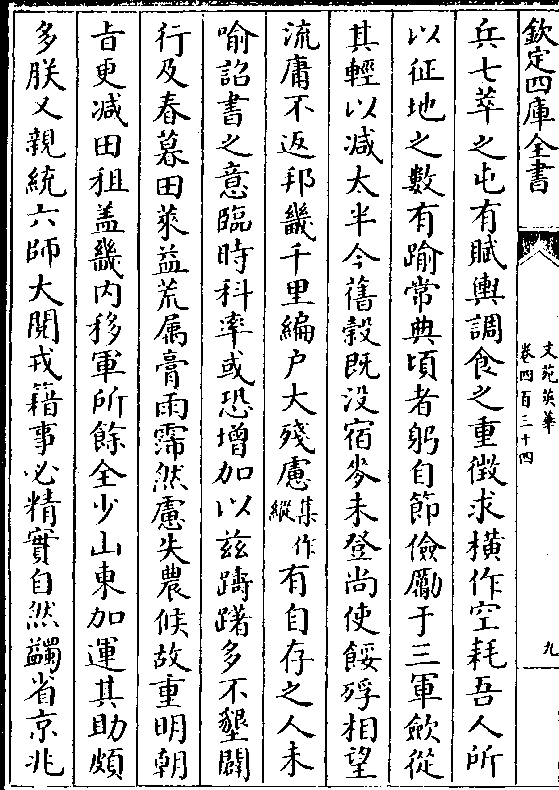 欽定四庫全書
文苑英華
卷四百三十四
九
兵七萃之屯有賦輿調食之重徵求橫作空耗吾人所
以征地之數有踰常典頃者躬自節儉勵于三軍歛從
其輕以減太半今舊穀既没宿麥未登尚使餒殍相望
流庸不返邦畿千里編户大殘慮集作縱有自存之人未
喻詔書之意臨時科率或恐增加以兹躊躇多不墾闢
行及春暮田萊益荒属膏雨霈然慮失農候故重明朝
㫖更减田租盖畿内移軍所餘全少山東加運其助頗
多朕又親統六師大閱戎籍事必精實自然蠲省京兆